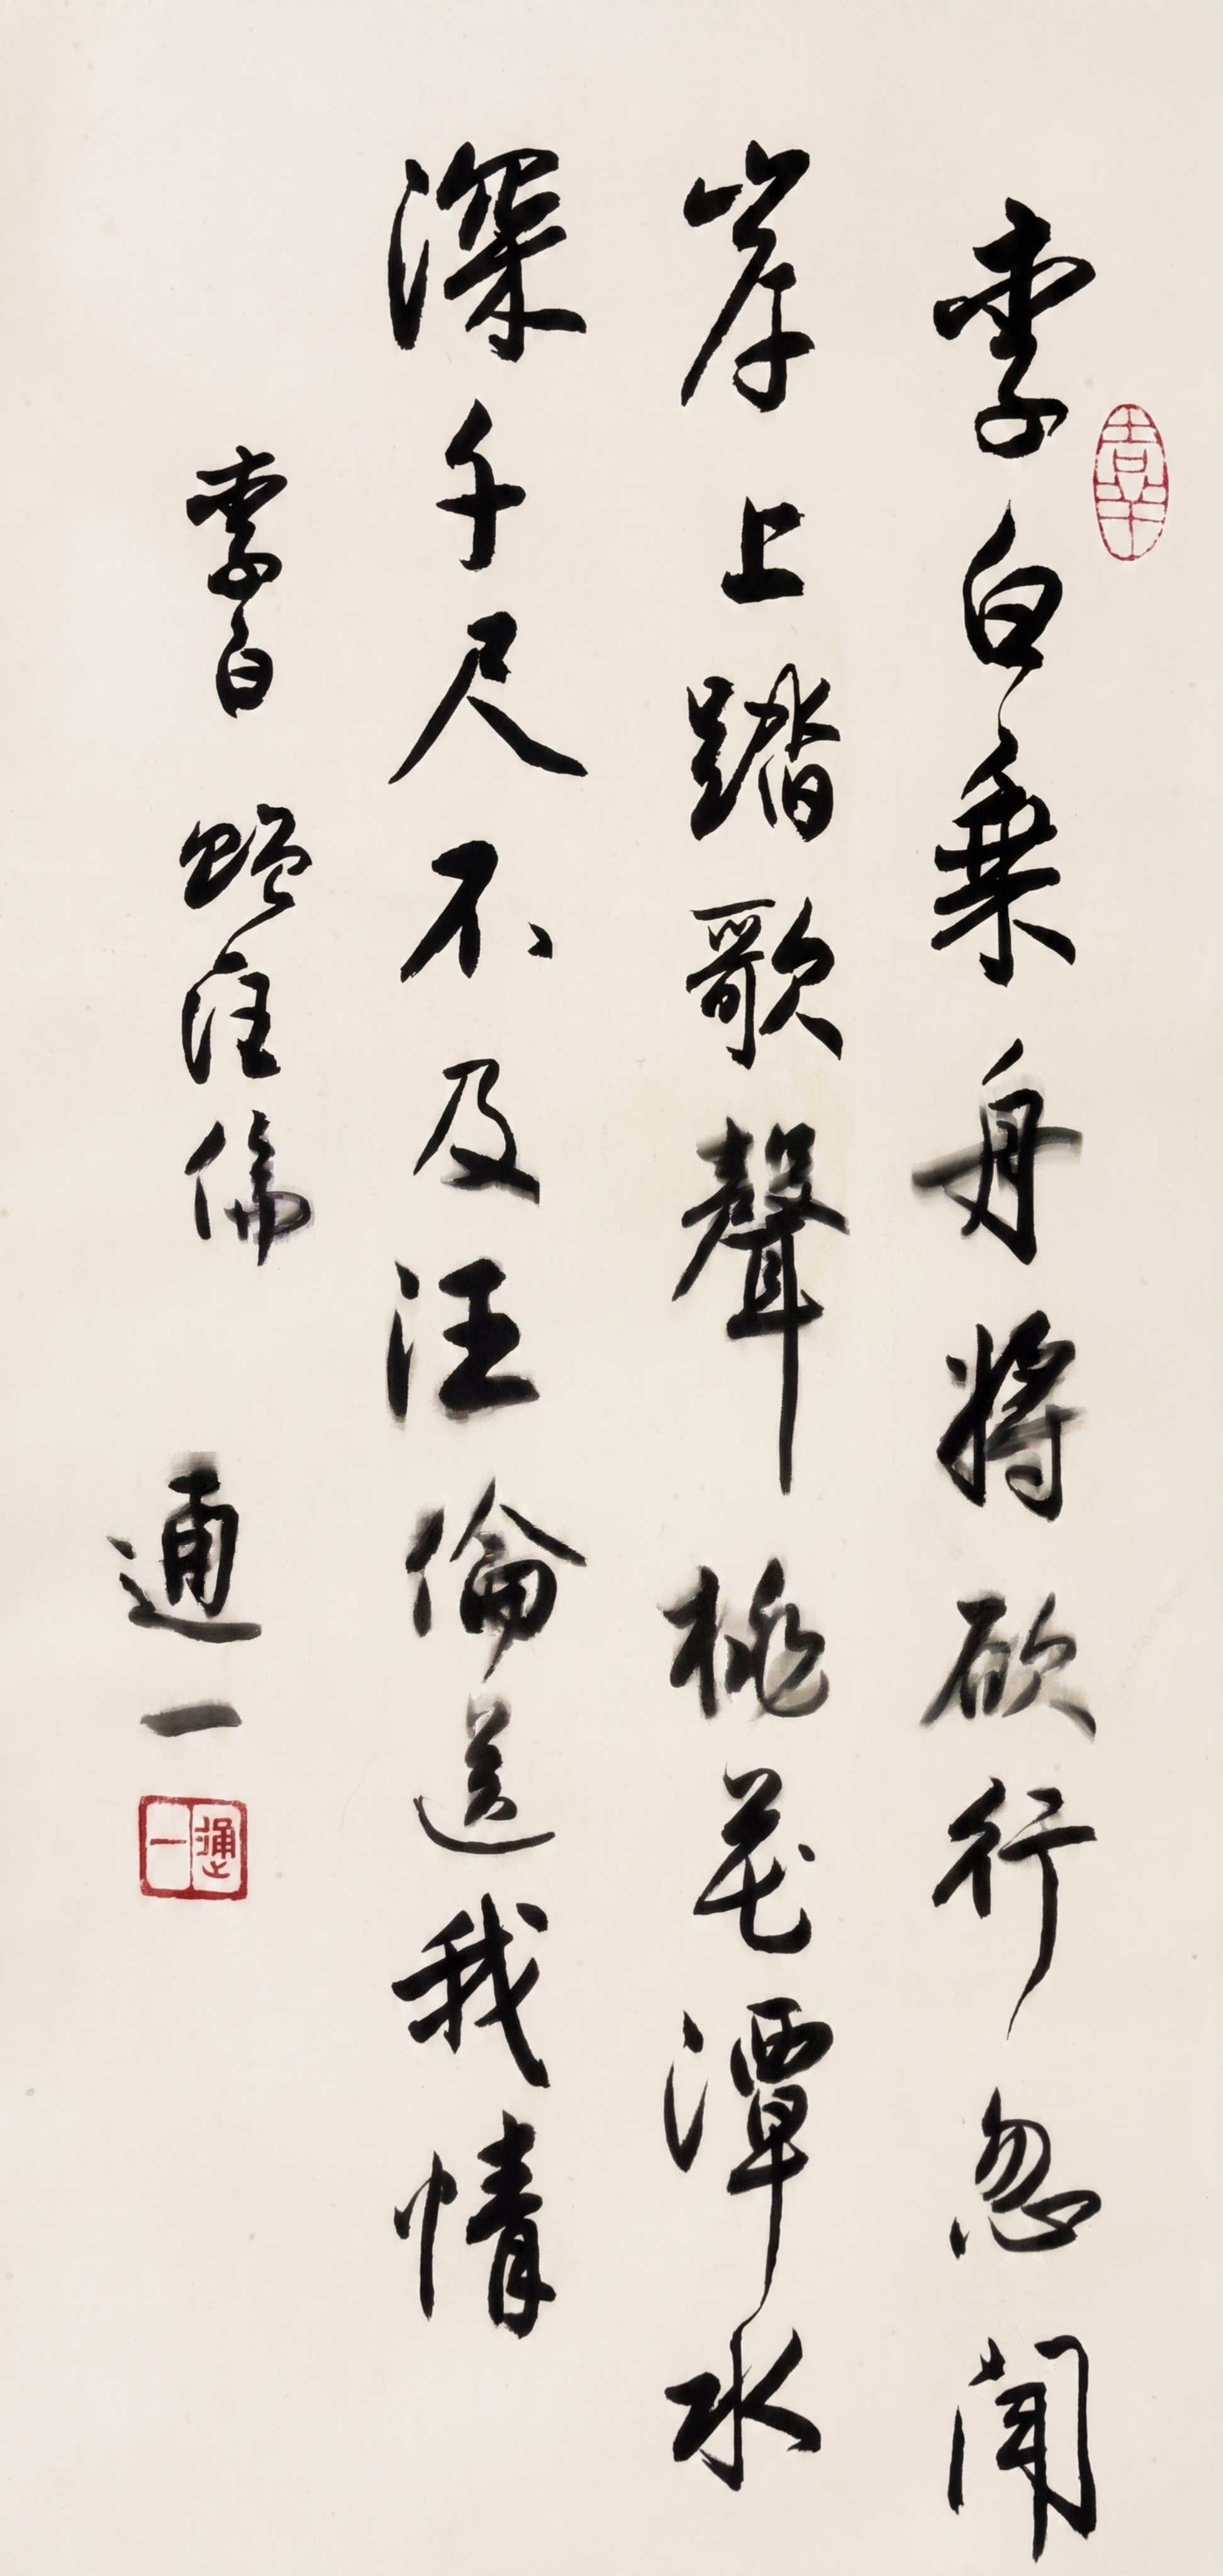 李白乘舟將欲行忽聞
岸上踏歌聲桃花潭水
深千尺不及汪倫送我情
李白 贈汪倫 通一
通一